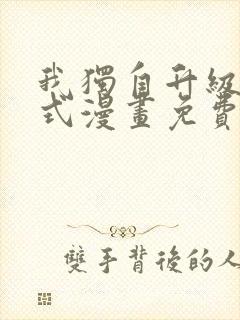 我獨自升級
式漫畫免費
雙手背後的人